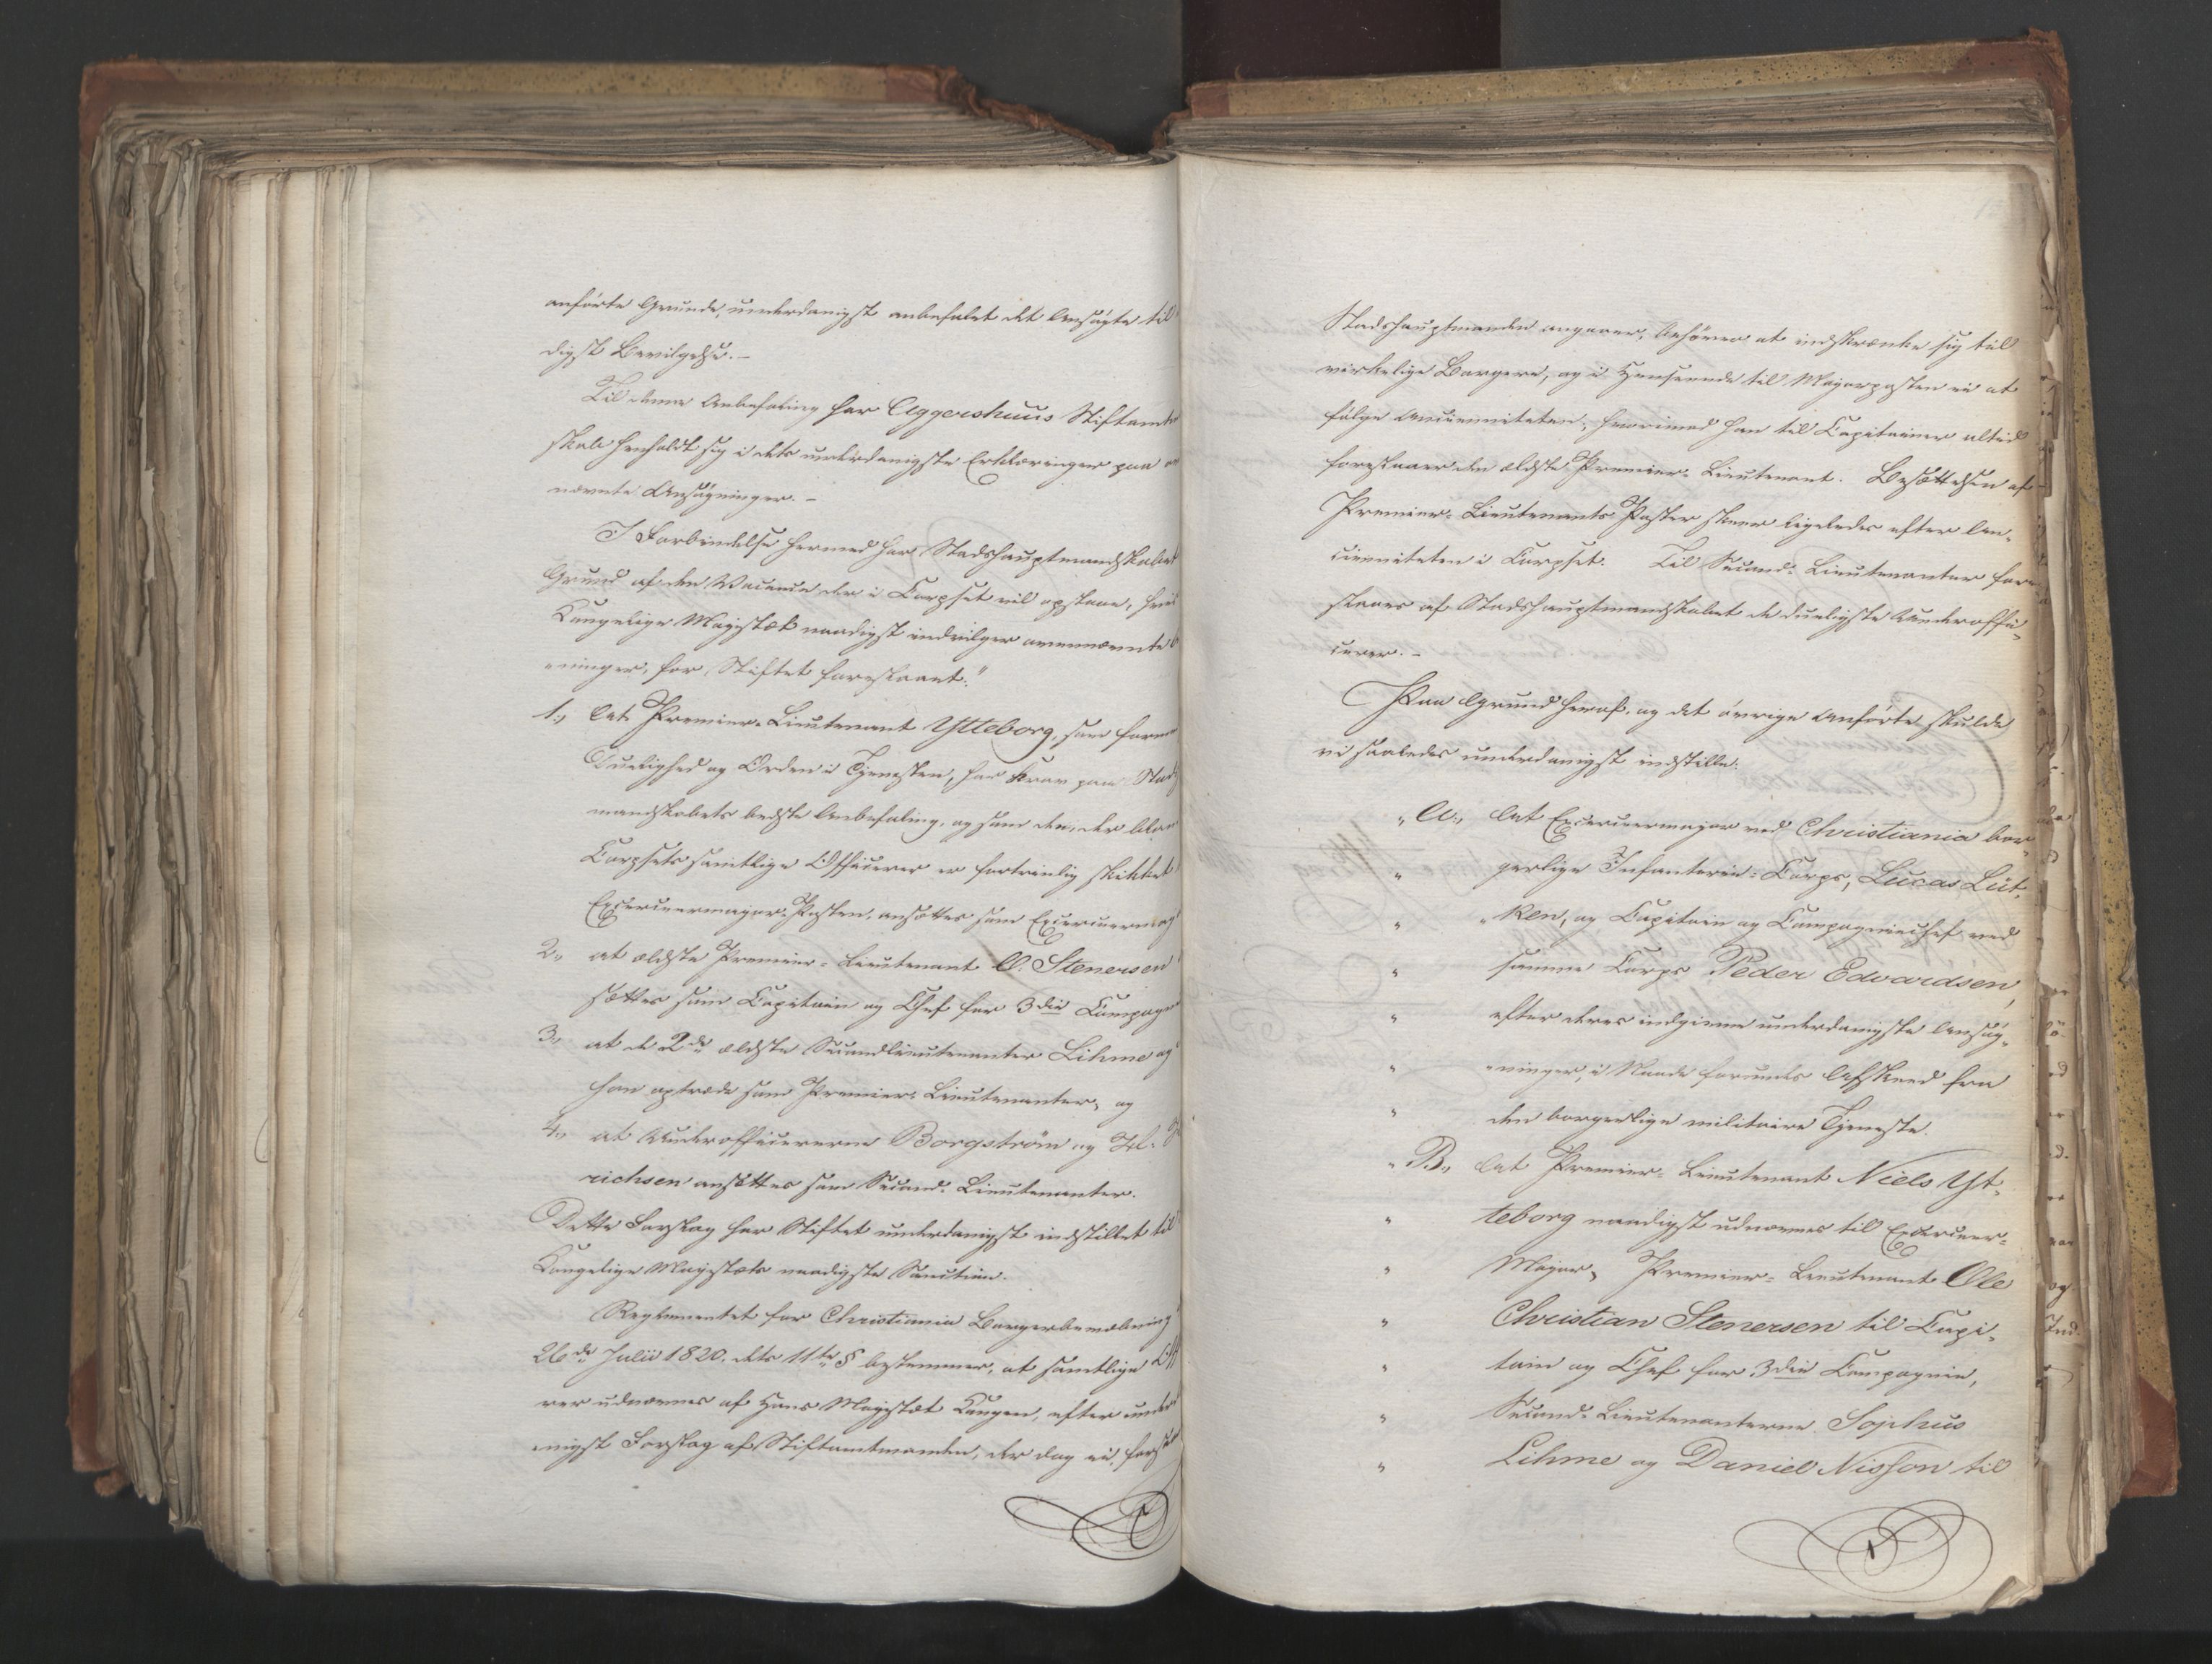 anførte Grunde, underdanigst anbefalet det Ansøgte til
digst Bevilgelse. –
Til denne Anbefaling har Aggershuus Stiftamt
skab henholdt sig i dets underdanigste Erklæringer paa
nævnte Ansøgninger. –
I Forbindelse hermed har Stadshauptmandskabet
Grund af den Vacance der i Corpset vil opstaae, hvis
Kongelige Majestæt naadigst indvilger ovennævnte
„ninger, for Stiftet foreslaaet:"
1., at Premier-Lieutenant Ytteborg, som formed
Duelighed og Orden i Tjenesten, har Krav paa Stads
mandskabets bedste Anbefaling, og som den, der blan
Corpsets samtlige Officierer er fortrinlig skikket
Exerceermajor-Posten, ansættes som Exerceermaj
2., at ældste Premier-Lieutenant O. Stenersen
sættes som Capitain og Chef for 3die Compagn
3., at de 2de ældste Secondlieutenanter Lihme og
son optræde som Premier-Lieutenanter, og
4., at Underofficiererne Borgström og
richsen ansættes som Second-Lieutenanter.
Dette Forslag har Stiftet underdanigst indstillet til
Kongelige Majestæts naadigste Sanction.
Reglementet for Christiania Borgerbevæbning
26de Julii 1820, dets 11te § bestemmer, at samtlige Off
rer udnævnes af Hans Majestæt Kongen, efter under
„nigst Forslag af Stiftamtmanden, der dog ei, for
Stadshauptmanden angaaer, behøver at indskrænke sig til
virkelige Borgere, og i Henseende til Majorposten ei at
følge Ancienniteten; hvorimod han til Capitainer altid
foreslaaer den ældste Premier-Lieutenant. Besættelsen af
Premier-Lieutenants Poster skeer ligeledes efter An„
cienniteten i Corpset. Til Second-Lieutenanter fore
slaaes af Stadshauptmandskabet de dueligste Underoffi„
cerer. –
Paa Grund heraf, og det øvrige Anførte skulde
vi saaledes underdanigst indstille:
„A., at Exerceermajor ved Christiania bor„
„ gerlige Infanterie-Corps, Lucas Lüt„
„ „ken, og Capitain og Compagniechef ved
„ samme Corps Peder Edvardsen,
„ efter deres indgivne underdanigste Ansøg„
„ „ninger, i Naade forundes Afskeed fra
„ den borgerlige militaire Tjeneste.
„B., at Premier-Lieutenant Niels Yt„
„ teborg naadigst udnævnes til Exerceer-
„ Major, Premier-Lieutenant Ole
„ Christian Stenersen til Capi„
„ tain og Chef for 3die Compagnie,
„ Second-Lieutenanterne Sophus
„ Lihme og Daniel Nisson til